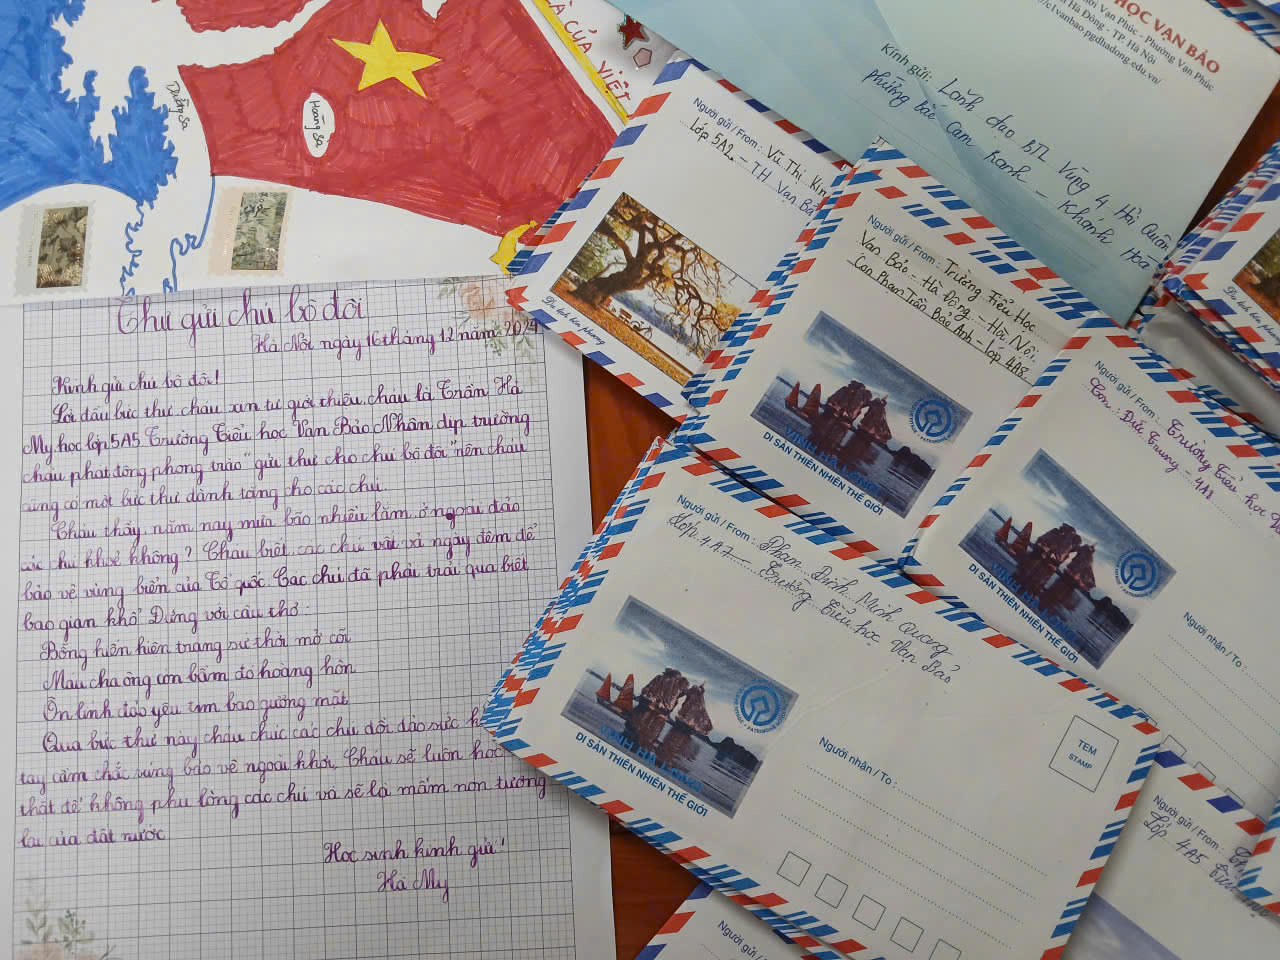 À CỦA VIỆT
Hoàng Sa
HỌC VẠN BẢO
Vạn Phúc - Phường Vạn Phúc
Hà Đông - TP. Hà Nội
//c1vanbao.pgdhadong.edu.vn/
Kính gửi: Lãnh đạo BTL Vùng 4 Hải Quân
phường bắc Cam Ranh - Khánh Hoà
Người gửi / From: Vũ Thị Kim
Lớp 5A2 - T.H Vạn Bả
Người gửi / From: Trường Tiểu Học
Vạn Bảo - Hà Đông - Hà Nội
Con Phạm Trần Bảo Anh - lớp 4A8
VỊNH HẠ LONG
DI SẢN THIÊN NHIÊN THẾ GIỚI
Người gửi / From: Trường Tiểu học
Con: Đức Trung - 4A8
VỊNH HẠ LONG
DI SẢN THIÊN NHIÊN THẾ GIỚI
Người nhận / To:
Người gửi / From: Phạm Đình Minh Quang
Lớp 4A7 - Trường Tiểu học Vạn Bảo
VỊNH HẠ LONG
DI SẢN THIÊN NHIÊN THẾ GIỚI
Người nhận / To:
TEM
STAMP
Người gửi / From:
Lớp 4A5
Người gửi / From:
Thư gửi chú bộ đội
Hà Nội ngày 16 tháng 12 năm 2024
Kính gửi chú bộ đội!
Lời đầu bức thư cháu xin tự giới thiệu, cháu là Trần Hà
My, học lớp 5A5 Trường Tiểu học Vạn Bảo. Nhân dịp trường
cháu phát động phong trào "gửi thư cho chú bộ đội" nên cháu
cũng có một bức thư dành tặng cho các chú
Cháu thấy năm nay mưa bão nhiều lắm, ở ngoài đảo
các chú khoẻ không? Cháu biết các chú vất vả ngày đêm để
bảo vệ vùng biển của Tổ quốc. Các chú đã phải trải qua biết
bao gian khổ. Đúng với câu thơ:
Bỗng hiển hiện trang sử thời mở cõi
Máu cha ông còn bầm đỏ hoàng hôn
Ôn linh đảo yêu tìm bao gương mặt
Qua bức thư này cháu chúc các chú dồi dào sức
tay cầm chắc súng bảo vệ ngoài khơi. Cháu sẽ luôn học
thật để không phụ lòng các chú và sẽ là mầm non tương
lai của đất nước
Học sinh kính gửi!
Hà My